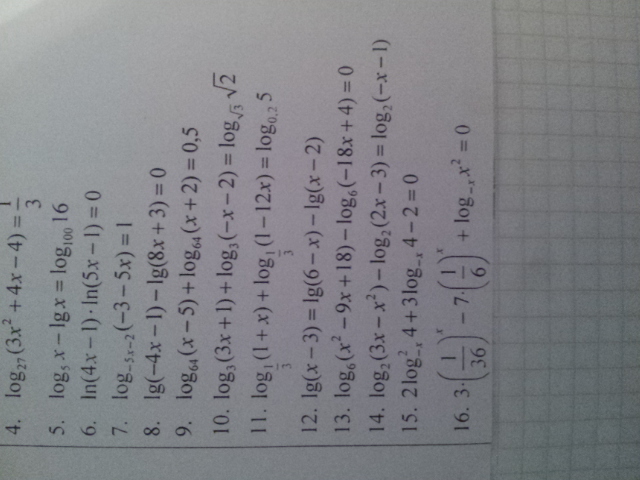 4. log₂₇(3x² + 4x − 4) = 1/3
5. log₅ x − lg x = log₁₀₀ 16
6. ln(4x − 1) · ln(5x − 1) = 0
7. log₋₅ₓ₋₂(−3 − 5x) = 1
8. lg(−4x − 1) − lg(8x + 3) = 0
9. log₆₄(x − 5) + log₆₄(x + 2) = 0,5
10. log₃(3x + 1) + log₃(−x − 2) = log_√3 √2
11. log_1/3 (1 + x) + log_1/3 (1 − 12x) = log₀,₂ 5
12. lg(x − 3) = lg(6 − x) − lg(x − 2)
13. log₆(x² − 9x + 18) − log₆(−18x + 4) = 0
14. log₂(3x − x²) − log₂(2x − 3) = log₂(−x − 1)
15. 2 log²₋ₓ 4 + 3 log₋ₓ 4 − 2 = 0
16. 3 · (1/36)ˣ − 7 · (1/6)ˣ + log₋ₓ x² = 0